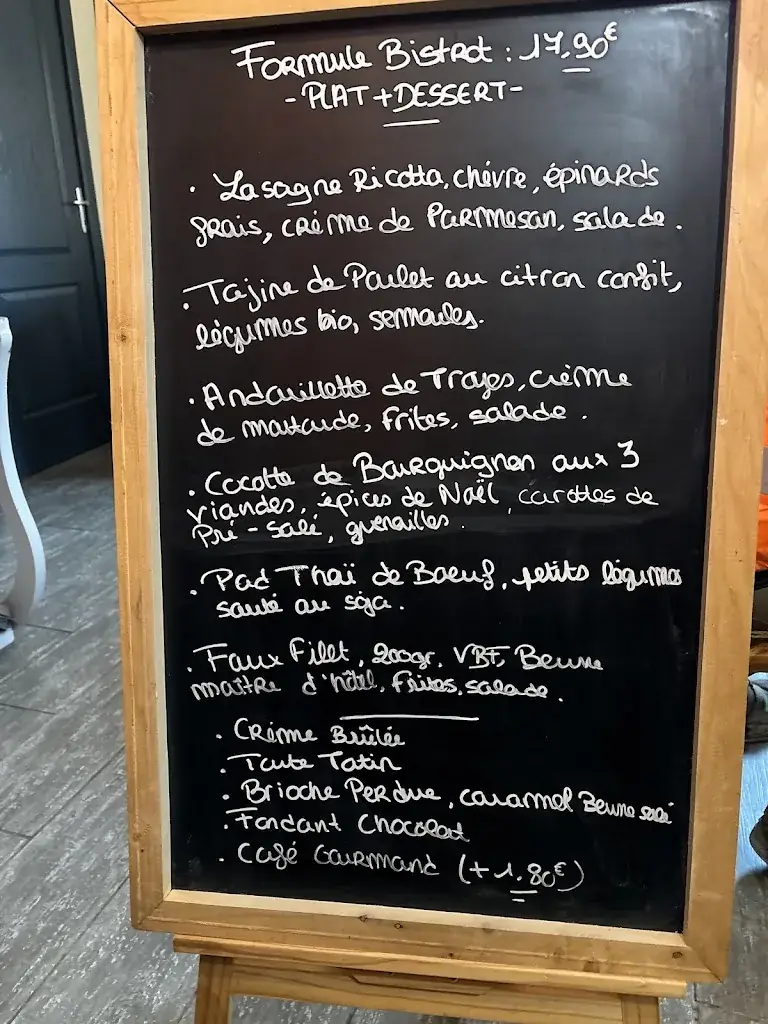 Formule Bistrot : 17.90€
- PLAT + DESSERT -
• Lasagne Ricotta, chèvre, épinards
frais, crème de Parmesan, salade.
• Tajine de Poulet au citron confit,
légumes bio, semoules.
• Andouillette de Troyes, crème
de moutarde, frites, salade.
• Cocotte de Bourguignon aux 3
viandes, épices de Noël, carottes de
Pré-salé, grenailles.
• Pad Thaï de Boeuf, petits légumes
sauté au soja.
• Faux Filet, 200gr, VBF, Beurre
maître d'hôtel, frites, salade.
• Crème Brûlée
• Tarte Tatin
• Brioche Perdue, caramel Beurre salé
• Fondant Chocolat
• Café Gourmand (+1.80€)